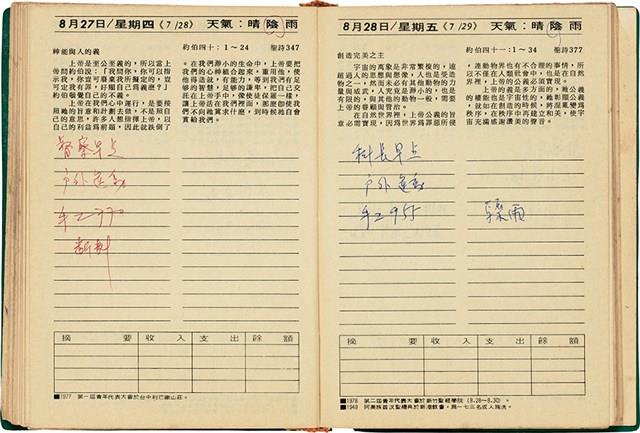 8月27日/星期四《7/28》 天氣：晴陰雨
神能與人的義 約伯四十：1～24 聖詩347
上帝是至公至義的，所以當上
帝問約伯說：「我問你，你可以指
示我。你豈可廢棄我所擬定的，豈
可定我有罪，好顯自己爲義麼？」
約伯頓覺自己的不義。
上帝在我們心中運行，是要按
照祂的旨意和計劃去做，不是照自
己的意思，許多人想指揮上帝，以
自己的利益爲前題，因此就跌倒了
。在我們渺小的生命中，上帝要把
我們的心神組合起來，重用他，使
他得造就，有能力，等到我們有足
夠的智慧，足够的謙卑，把自己交
託在上帝手中，像使徒保羅一樣，
讓上帝活在我們裡面，那麼卽使我
們不向祂冀求什麼，到時候祂自會
賞給我們。
督察早点
户外運動
手工970
摘要 收入 支出 餘額
■1977 第一屆青年代表大會於台中利巴嫩山莊。
8月28日/星期五《7/29》 天氣：晴陰雨
創造完美之主 約伯四十一：1～34 聖詩377
宇宙的萬象是非常繁複的，遠
超過人的思想與想像，人也是受造
物之一，然而未必有其他動物的力
量與威武，人究竟是渺小的，也是
有限的，與其他的動物一般，需要
上帝的眷顧與管治。
在自然世界裡，上帝公義的旨
意必需實現，因爲世界爲罪惡所侵
，連動物界也有不合理的事情，所
以不僅在人類社會中，也是在自然
界裡，上帝的公義必需實現。
上帝的義是多方面的，祂公義
的樣態也是宇宙性的，祂彰顯公義
，就如在創造的時候，將混亂變爲
秩序，在自然中再建立和美，使宇
宙充滿感謝讚美的聲音。
科長早点
户外運動
手工955
驟雨
摘要 收入 支出 餘額
■1978 第二屆青年代表大會於新竹聖經學院（8.28～8.30）。